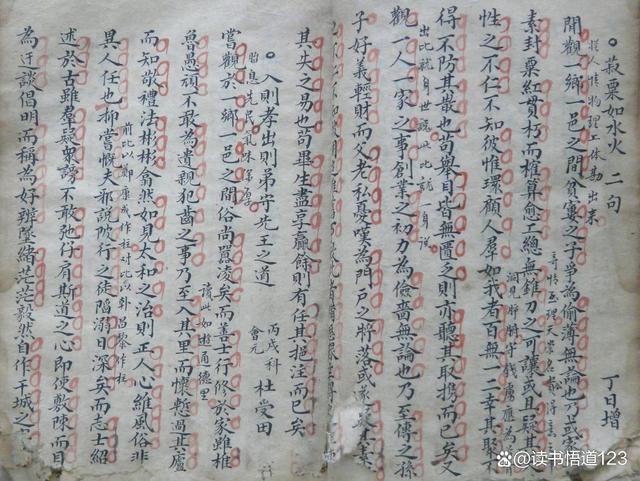 菽粟如水火 二句
丁日增
從人情物理上休易出来
聞觀一鄉一邑之間貧寠之子爭為偷薄無論也乃或家
素封粟紅貫朽而權算愈工總無錐刀之可讓或且疑其
性之不仁不知彼惟環顧人羣如我者百無一二幸其聚不
得不防其散也苟舉目皆無匱乏則亦聽其取攜而已矣又
觀一人一家之事創業之初力為儉嗇無論也乃至傳之孫
子好義輕財而父老私憂嘆為門戶之將落或
其失之易也苟畢生盡享贏餘則有任其挹注而已矣
入則孝出則弟守先王之道
丙戌科
會元
杜受田
嘗觀於一鄉一邑之間俗尚囂凌矣而善士行修於家雖椎
魯愚頑不敢為遺親犯齒之事乃至入其里而懷慙過其廬
而知敬禮法彬彬翕然如見太和之治則正人心維風俗非
異人任也抑嘗慨夫邪說詖行之徒陷溺日深矣而志士紹
述於古雖羣疑衆謗不敢弛仔肩斯道之心即使敷陳而目
為迂談倡明而稱為好辨墜緒茫茫毅然自作干城之
@读书悟道123